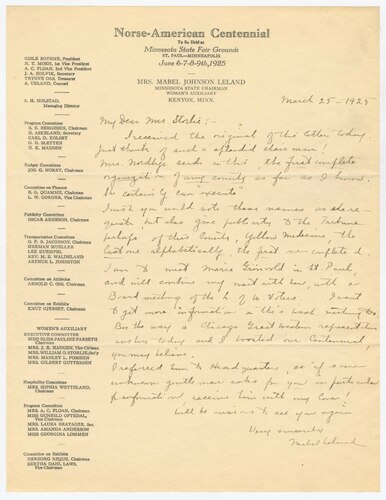 Norse-American Centennial
To Be Held at
Minnesota State Fair Grounds
ST. PAUL—MINNEAPOLIS
June 6-7-8-9th, 1925
MRS. MABEL JOHNSON LELAND
MINNESOTA STATE CHAIRMAN
WOMAN'S AUXILIARY
KENYON, MINN.
GISLE BOTHNE, President
N. T. MOEN, 1st Vice President
A. C. FLOAN, 2nd Vice President
J. A. HOLVIK, Secretary
TRYGVE OAS, Treasurer
A. UELAND, Counsel
S. H. HOLSTAD,
Managing Director
Program Committee
N. E. BERGESEN, Chairman
H. ASKELAND, Secretary
CARL D. KOLSET
O. H. SLETTEN
H. K. MADSEN
Budget Committee
JOS. G. NORBY, Chairman
Committee on Finance
H. G. QUAMME, Chairman
L. W. GORDER, Vice Chairman
Publicity Committee
OSCAR ARNESON, Chairman
Transportation Committee
O. P. B. JACOBSON, Chairman
HERMAN MUELLER
LEE KUEMPEL
REV. M. E. WALDELAND
ARTHUR L. JOHNSTON
Committee on Athletics
ARNOLD C. OSS, Chairman
Committee on Exhibits
KNUT GJERSET, Chairman
WOMEN'S AUXILIARY
EXECUTIVE COMMITTEE
MISS ELISA PAULINE FARSETH
Chairman
MRS. WILLIAM O. STORLIE, Sec'y
MRS. MANLEY L. FOSSEEN
MRS. GILBERT GUTTERSEN
Hospitality Committee
MRS. SOPHIA WETTELAND,
Chairman
Program Committee
MRS. A. C. FLOAN, Chairman
MISS GUNHILD OFTEDAL,
Vice Chairman
MRS. LAURA BRATAGER, Sec.
MRS. AMANDA ANDERSON
MISS GEORGINA LOMMEN
Committee on Exhibits
HERBORG REQUE, Chairman
BERTHA DAHL LAWS,
Vice Chairman
March 25 - 1925
My Dear Mrs Storlie:-
I received the original of this letter today.
Just think of such a splendid chairman!
Mrs. sends in this, the first complete
organization of any county as far as I know.
She certainly can "execute"
I wish you would note these names as
but also give publicity to the Tribune
perhaps of this County, Yellow Medicine, the
last one alphabetically the first one completed.
I am to meet Marie in St Paul,
and will combine my visit with her, with a
Board meeting of the L of W Voters. I want
to get more information
By the way a Chicago Great Western representative
was here today and I boosted our Centennial,
you may believe.
I referred him to Headquarters, so if some
unknown gentleman asks for you in particular
for information, receive him with my love!
Will be nice to see you again
Very sincerely
Mabel Leland